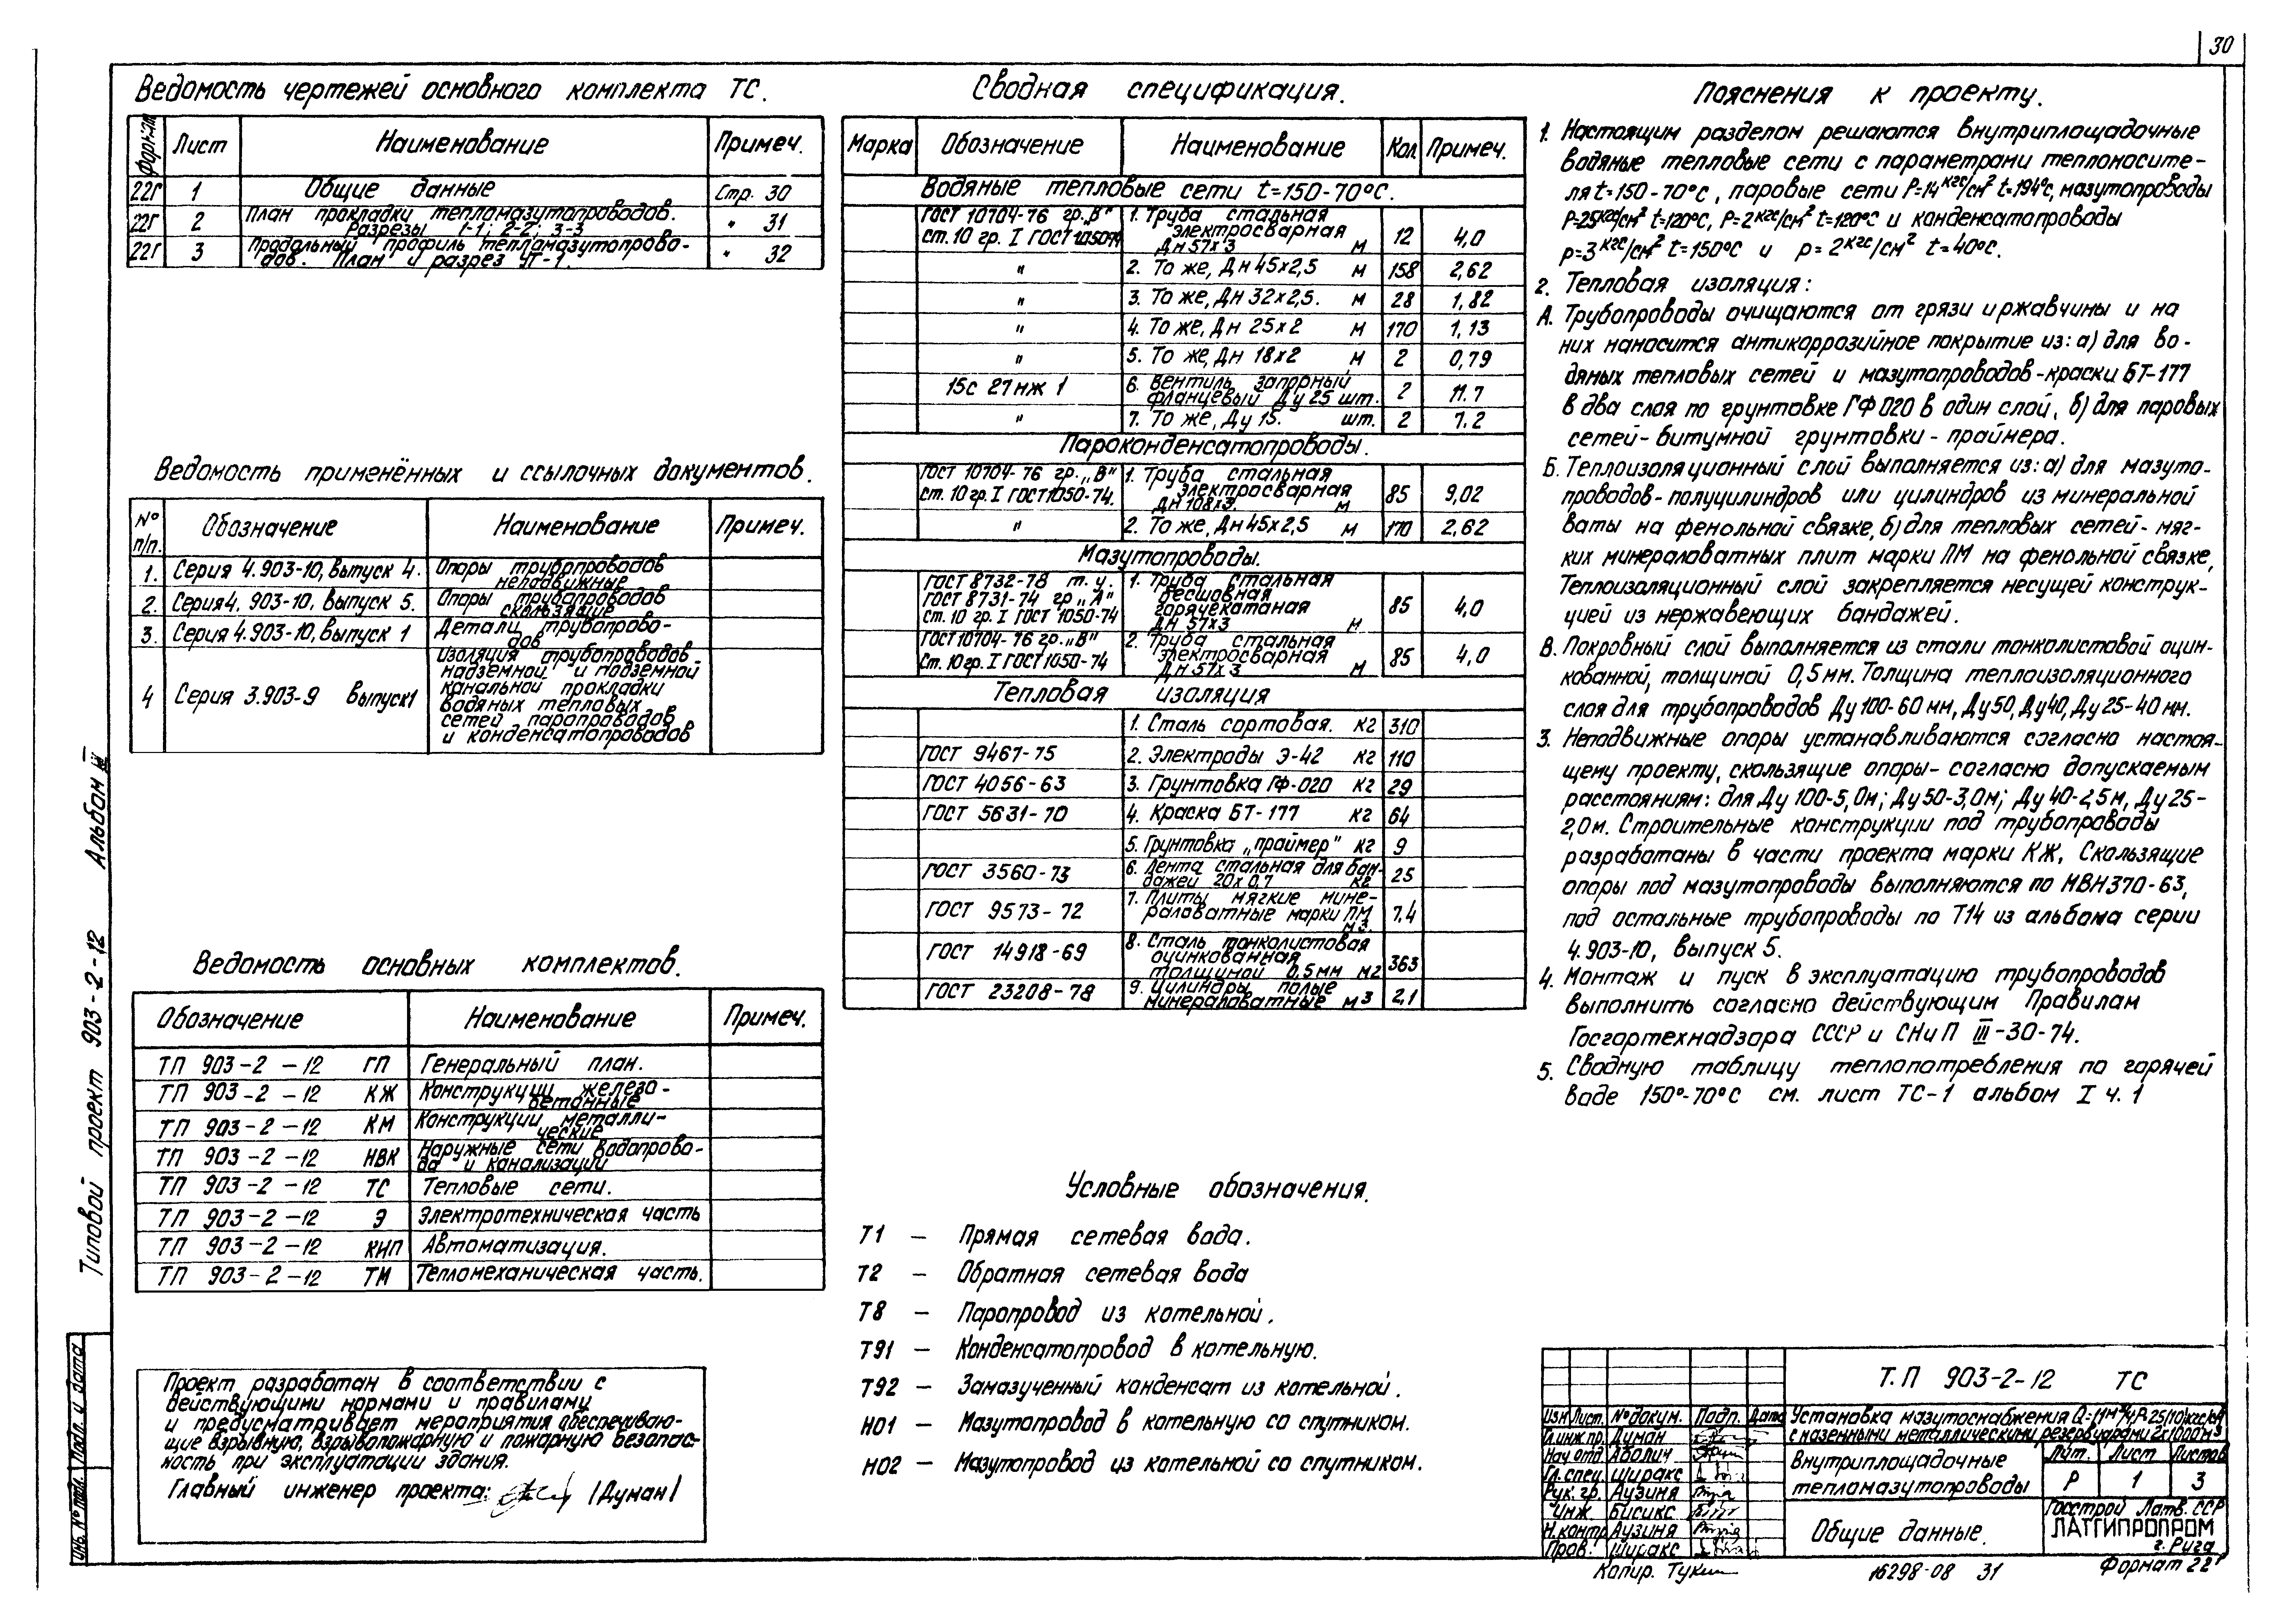 30
Ведомость чертежей основного комплекта ТС.
Формат Лист Наименование Примеч.
22Г 1 Общие данные Стр. 30
22Г 2 План прокладки тепломазутопроводов. Разрезы 1-1; 2-2; 3-3 " 31
22Г 3 Продольный профиль тепломазутопрово-
дов. План и разрез УТ-1. " 32
Ведомость применённых и ссылочных документов.
№ п/п. Обозначение Наименование Примеч.
1. Серия 4.903-10, выпуск 4. Опоры трубопроводов
неподвижные
2. Серия 4.903-10, выпуск 5. Опоры трубопроводов
скользящие
3. Серия 4.903-10, выпуск 1 Детали трубопрово-
дов
4 Серия 3.903-9 выпуск 1 Изоляция трубопроводов
надземной и подземной
канальной прокладки
водяных тепловых
сетей паропроводов
и конденсатопроводов
Ведомость основных комплектов.
Обозначение Наименование Примеч.
ТП 903-2-12 ГП Генеральный план.
ТП 903-2-12 КЖ Конструкции железо-
бетонные
ТП 903-2-12 КМ Конструкции металли-
ческие
ТП 903-2-12 НВК Наружные сети водопрово-
да и канализации
ТП 903-2-12 ТС Тепловые сети.
ТП 903-2-12 Э Электротехническая часть
ТП 903-2-12 КИП Автоматизация.
ТП 903-2-12 ТМ Тепломеханическая часть.
Проект разработан в соответствии с
действующими нормами и правилами
и предусматривает мероприятия обеспечиваю-
щие взрывную, взрывопожарную и пожарную безопас-
ность при эксплуатации здания.
Главный инженер проекта: /Думан/
Сводная спецификация.
Марка Обозначение Наименование Кол. Примеч.
Водяные тепловые сети t=150-70°С.
ГОСТ 10704-76 гр. „В"
Ст. 10 гр. I ГОСТ 1050-74 1. Труба стальная
электросварная
Дн 57х3 м 12 4,0
" 2. То же, Дн 45х2,5 м 158 2,62
" 3. То же, Дн 32х2,5. м 28 1,82
" 4. То же, Дн 25х2 м 170 1,13
" 5. То же, Дн 18х2 м 2 0,79
15с 27нж 1 6. Вентиль запорный
фланцевый Ду 25 шт. 2 11.7
" 7. То же, Ду 15. шт. 2 7.2
Пароконденсатопроводы.
ГОСТ 10704-76 гр. „В"
Ст. 10 гр. I ГОСТ 1050-74. 1. Труба стальная
электросварная
Дн 108х3. м 85 9,02
" 2. То же, Дн 45х2,5 м 170 2,62
Мазутопроводы.
ГОСТ 8732-78 т.у.
ГОСТ 8731-74 гр „А"
Ст. 10 гр I ГОСТ 1050-74 1. Труба стальная
бесшовная
горячекатаная
Дн 57х3 м 85 4,0
ГОСТ 10704-76 гр. „В"
Ст. 10 гр. I ГОСТ 1050-74 2. Труба стальная
электросварная
Дн 57х3 м 85 4,0
Тепловая изоляция
1. Сталь сортовая. кг 310
ГОСТ 9467-75 2. Электроды Э-42 кг 110
ГОСТ 4056-63 3. Грунтовка ГФ-020 кг 29
ГОСТ 5631-70 4. Краска БТ-177 кг 64
5. Грунтовка „праймер" кг 9
ГОСТ 3560-73 6. Лента стальная для бан-
дажей 20х0,7 кг 25
ГОСТ 9573-72 7. Плиты мягкие мине-
раловатные марки ПМ
м3. 7,4
ГОСТ 14918-69 8. Сталь тонколистовая
оцинкованная
толщиной 0,5мм м2 363
ГОСТ 23208-78 9. Цилиндры полые
минераловатные м3 2,1
Условные обозначения.
Т1 – Прямая сетевая вода.
Т2 – Обратная сетевая вода
Т8 – Паропровод из котельной.
Т91 – Конденсатопровод в котельную.
Т92 – Замазученный конденсат из котельной.
Н01 – Мазутопровод в котельную со спутником.
Н02 – Мазутопровод из котельной со спутником.
Пояснения к проекту.
1. Настоящим разделом решаются внутриплощадочные
водяные тепловые сети с параметрами теплоносите-
ля t=150-70°С, паровые сети Р=14кгс/см² t=194°с, мазутопроводы
Р=25кгс/см² t=120°С, Р=2кгс/см² t=120°С и конденсатопроводы
р=3кгс/см² t=150°С и р=2кгс/см² t=40°С.
2. Тепловая изоляция:
А. Трубопроводы очищаются от грязи и ржавчины и на
них наносится антикоррозийное покрытие из: а) для во-
дяных тепловых сетей и мазутопроводов-краски БТ-177
в два слоя по грунтовке ГФ 020 в один слой, б) для паровых
сетей-битумной грунтовки-праймера.
Б. Теплоизоляционный слой выполняется из: а) для мазуто-
проводов-полуцилиндров или цилиндров из минеральной
ваты на фенольной связке, б) для тепловых сетей-мяг-
ких минераловатных плит марки ПМ на фенольной связке,
Теплоизоляционный слой закрепляется несущей конструк-
цией из нержавеющих бандажей.
В. Покровный слой выполняется из стали тонколистовой оцин-
кованной, толщиной 0,5мм. Толщина теплоизоляционного
слоя для трубопроводов Ду 100-60 мм, Ду 50, Ду 40, Ду 25-40 мм.
3. Неподвижные опоры устанавливаются согласно настоя-
щему проекту, скользящие опоры-согласно допускаемым
расстояниям: для Ду 100-5,0м; Ду 50-3,0м; Ду 40-2,5м, Ду 25-
2,0м. Строительные конструкции под трубопроводы
разработаны в части проекта марки КЖ. Скользящие
опоры под мазутопроводы выполняются по МВН 370-63,
под остальные трубопроводы по Т14 из альбома серии
4.903-10, выпуск 5.
4. Монтаж и пуск в эксплуатацию трубопроводов
выполнить согласно действующим Правилам
Госгортехнадзора СССР и СНиП III-30-74.
5. Сводную таблицу теплопотребления по горячей
воде 150°-70°С см. лист ТС-1 альбом I ч. 1
Т.П 903-2-12 ТС
Изм Лист. № докум. Подп. Дата
Гл.инж.пр. Думан
Нач отд Аболин
Гл. спец. Ширакс
Рук. гр. Аузиня
Инж Бисикс
Н.контр Аузиня
Пров. Ширакс
Установка мазутоснабжения Q=11м³/ч, Р=25(10)кгс/см²
с наземными металлическими резервуарами 2х1000м³
Внутриплощадочные
тепломазутопроводы
Лит. Лист Листов
Р 1 3
Общие данные.
Госстрой Латв. ССР
ЛАТГИПРОПРОМ
г. Рига
Копир. Формат 22г
16298-08 31
Типовой проект 903-2-12 Альбом
Инв. № подл. Подп. и дата